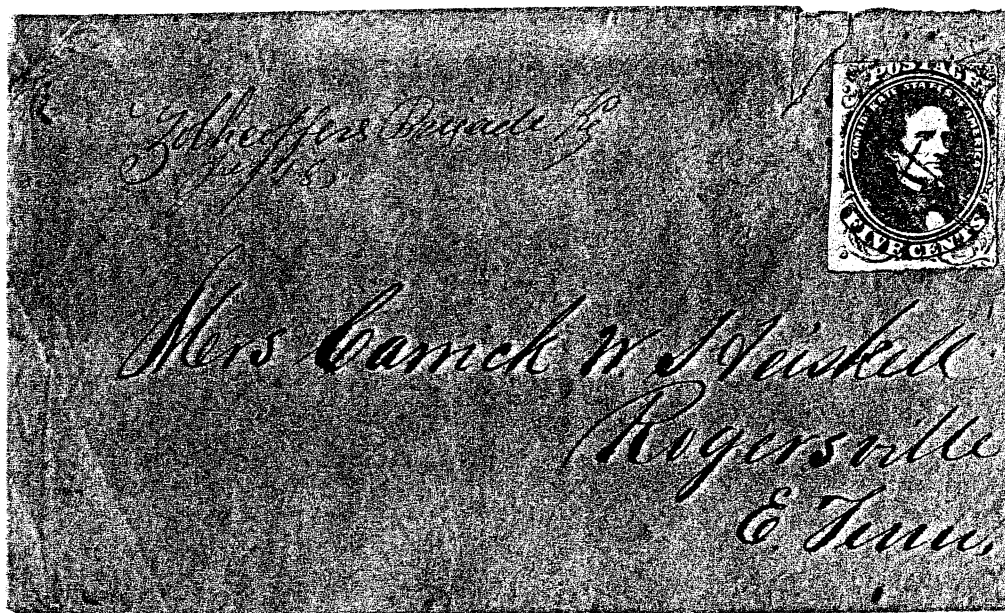 Zollicoffers Brigade Ky
POSTAGE
CONFEDERATE STATES OF AMERICA
FIVE CENTS
Mrs Carrick W Heiskell
Rogersville
E. Tenn,